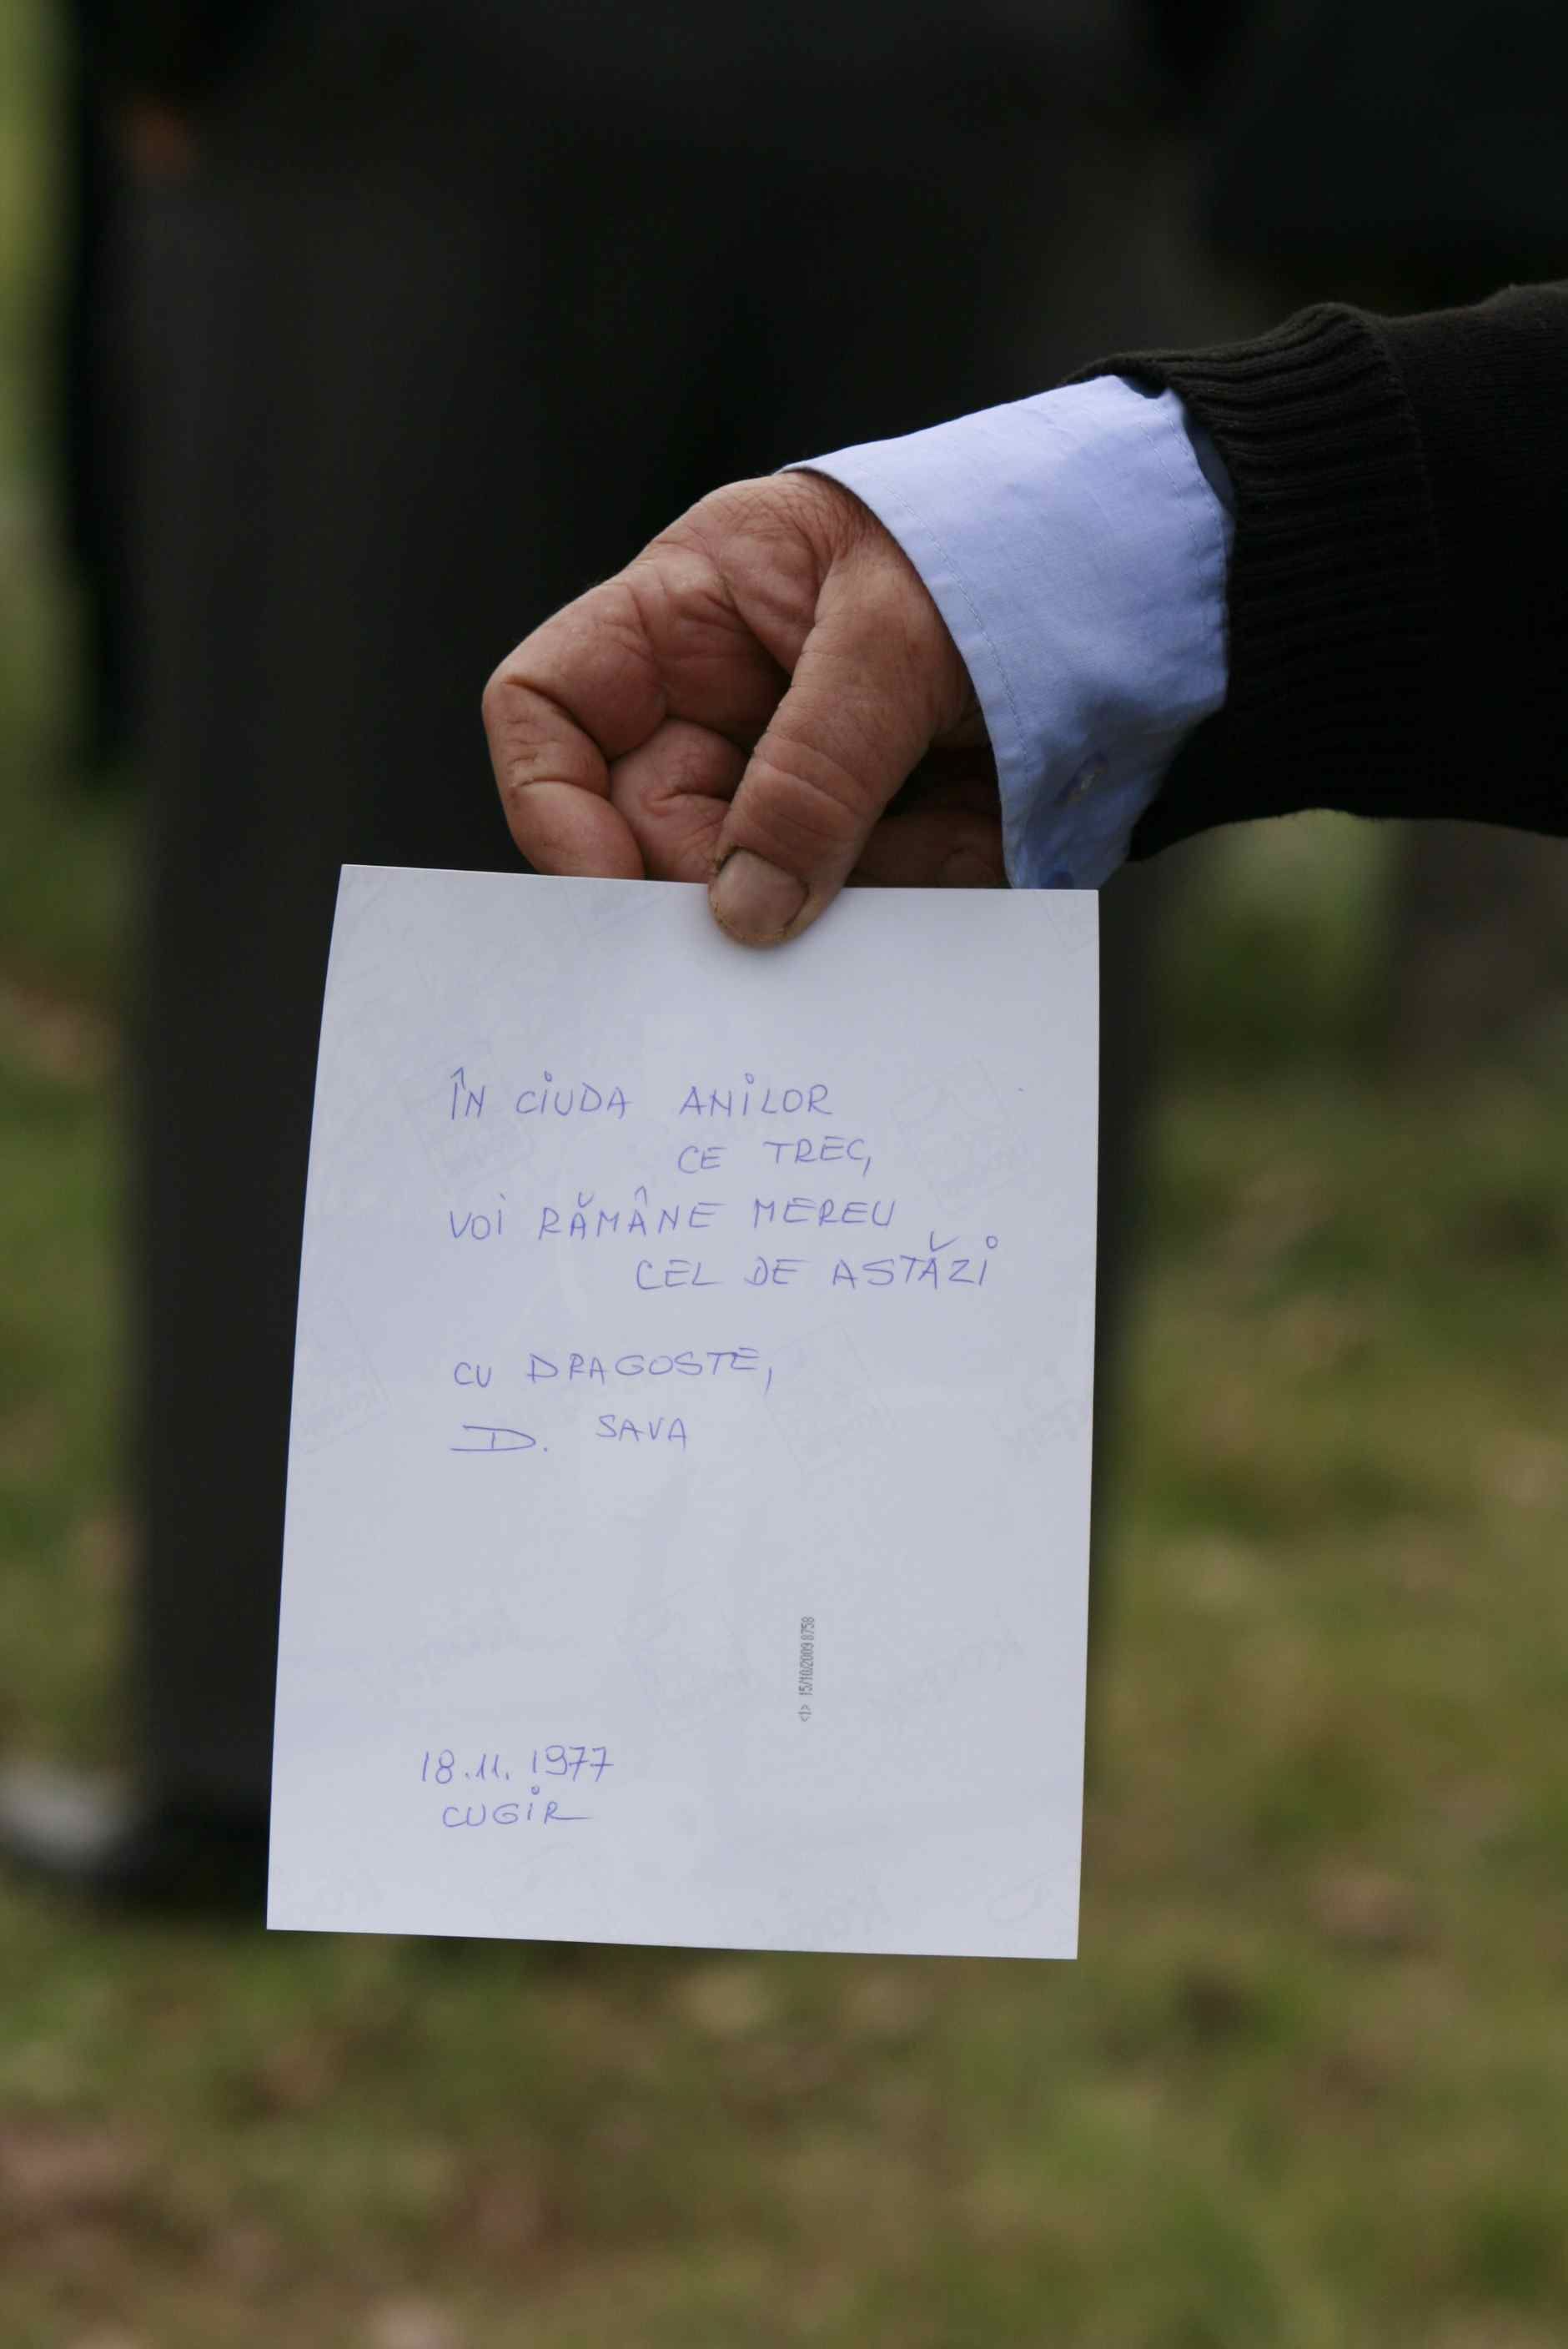 ÎN CIUDA ANILOR
CE TREC,
VOI RĂMÂNE MEREU
CEL DE ASTĂZI
CU DRAGOSTE,
D. SAVA
<1> 15/10/2009 8758
18.11.1977
CUGIR